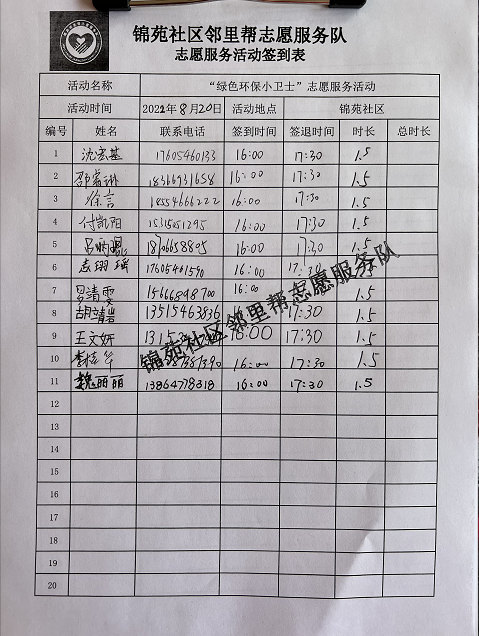 锦苑社区邻里帮志愿服务队
志愿服务活动签到表
活动名称 “绿色环保小卫士”志愿服务活动
活动时间 2022年8月20日 活动地点 锦苑社区
编号 姓名 联系电话 签到时间 签退时间 时长 总时长
1 沈宏基 17605460133 16:00 17:30 1.5
2 邵睿琳 18366931658 16:00 17:30 1.5
3 徐言 18554666222 16:00 17:30 1.5
4 付凯阳 15315051295 16:00 17:30 1.5
5 吕炳 18706658805 16:00 17:30 1.5
6 孟翊瑶 17605461590 16:00 17:30 1.5
7 清雯 15666898700 16:00 1.5
8 胡靖岩 13515463836 17:30 1.5
9 王文妍 16:00 17:30 1.5
10 李桂华 16:00 17:30 1.5
11 魏丽丽 13864778318 16:00 17:30 1.5
锦苑社区邻里帮志愿服务队
12
13
14
15
16
17
18
19
20